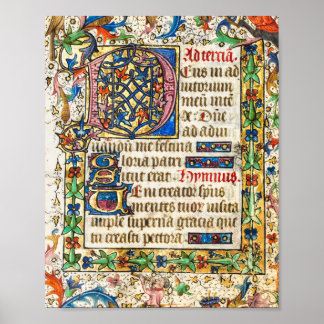 Ad tertiã.
Eus in ad
iutorium
meũ inte
Dñe
ad adiu
uandũ me festina
Gloria patri
sicut erat. Hymnus.
Eni creator spũs
mentes tuor uisita
imple superna gracia que
tu creasti pectora.